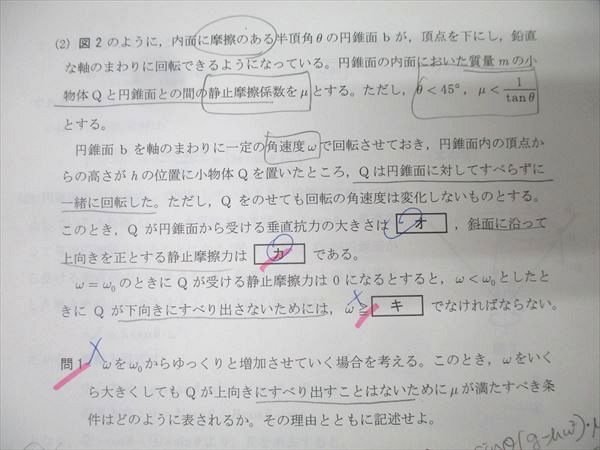 (2) 図2のように，内面に摩擦のある半頂角θの円錐面 b が，頂点を下にし，鉛直
な軸のまわりに回転できるようになっている。円錐面の内面において質量 m の小
物体 Q と円錐面との間の静止摩擦係数を μ とする。ただし，θ＜45°，μ＜1/tanθ
とする。
円錐面 b を軸のまわりに一定の角速度 ω で回転させておき，円錐面内の頂点か
らの高さが h の位置に小物体 Q を置いたところ，Q は円錐面に対してすべらずに
一緒に回転した。ただし，Q をのせても回転の角速度は変化しないものとする。
このとき，Q が円錐面から受ける垂直抗力の大きさは オ ，斜面に沿って
上向きを正とする静止摩擦力は カ である。
ω＝ω0 のときに Q が受ける静止摩擦力は 0 になるとすると，ω＜ω0 としたと
きに Q が下向きにすべり出さないためには，ω≧ キ でなければならない。
問1 ω を ω0 からゆっくりと増加させていく場合を考える。このとき，ω をいく
ら大きくしても Q が上向きにすべり出すことはないために μ が満たすべき条
件はどのように表されるか。その理由とともに記述せよ。
sinθ(g-hω²)・μ